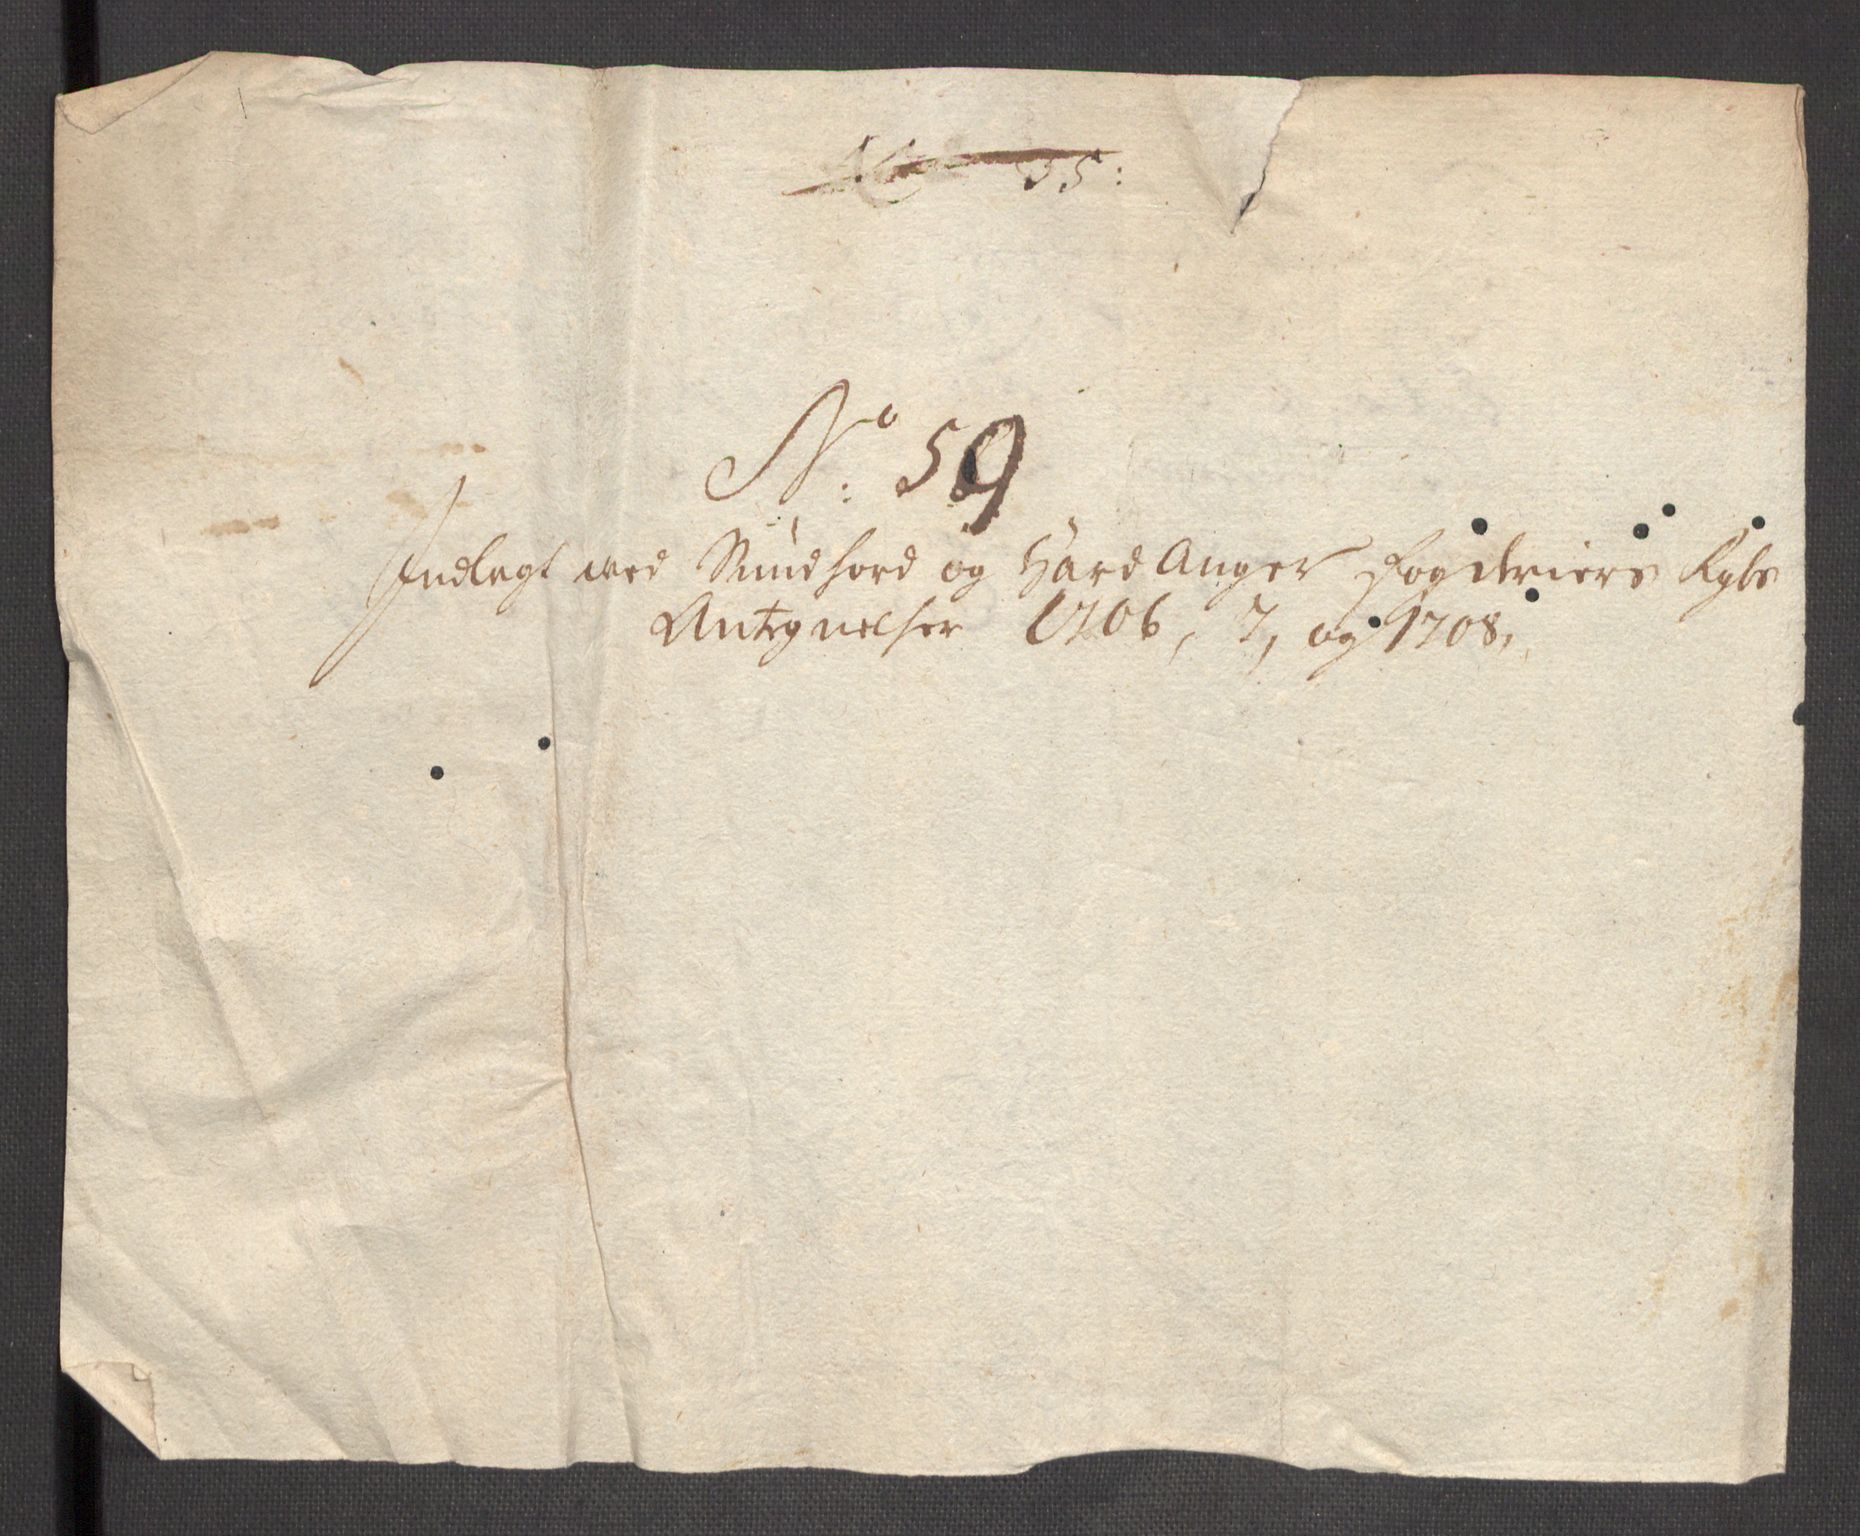 35:
No: 59
Indlagt ved Sundhord og HardAnger fogderiers Rgbs
Antegnelser 1706, 7, og 1708,